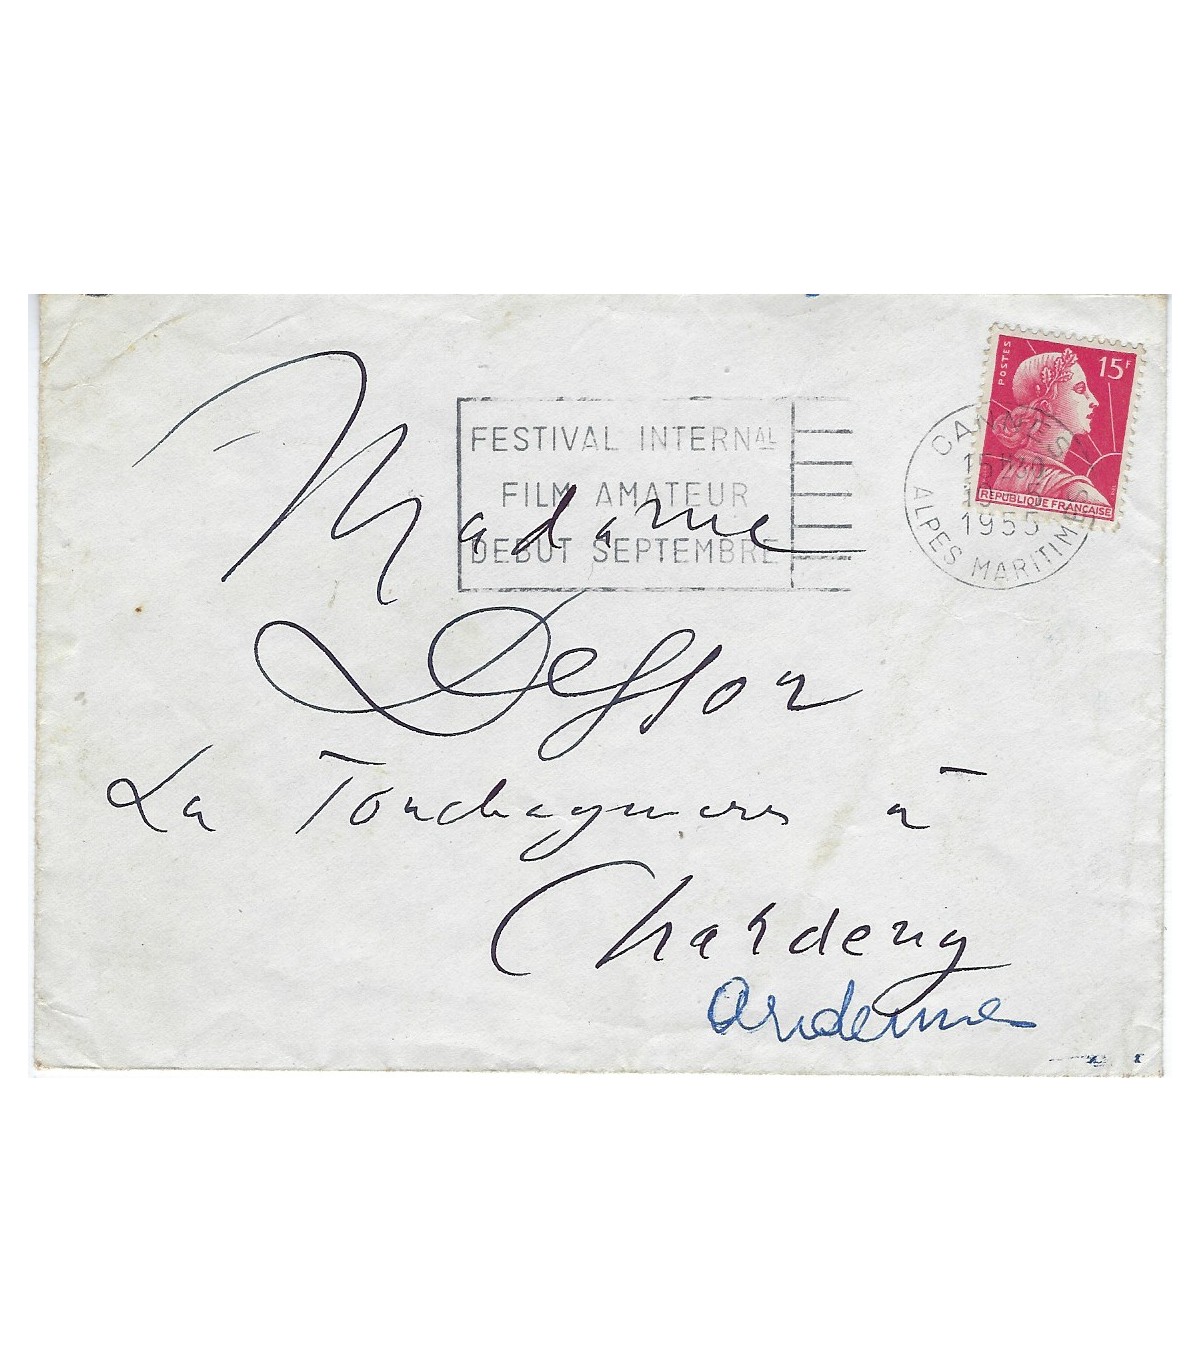 POSTES
15F
RÉPUBLIQUE FRANÇAISE
CANNES
1955
ALPES MARITIMES
FESTIVAL INTERNAL
FILM AMATEUR
DEBUT SEPTEMBRE
Madame
Desson
La à
Chardeny
Ardennes